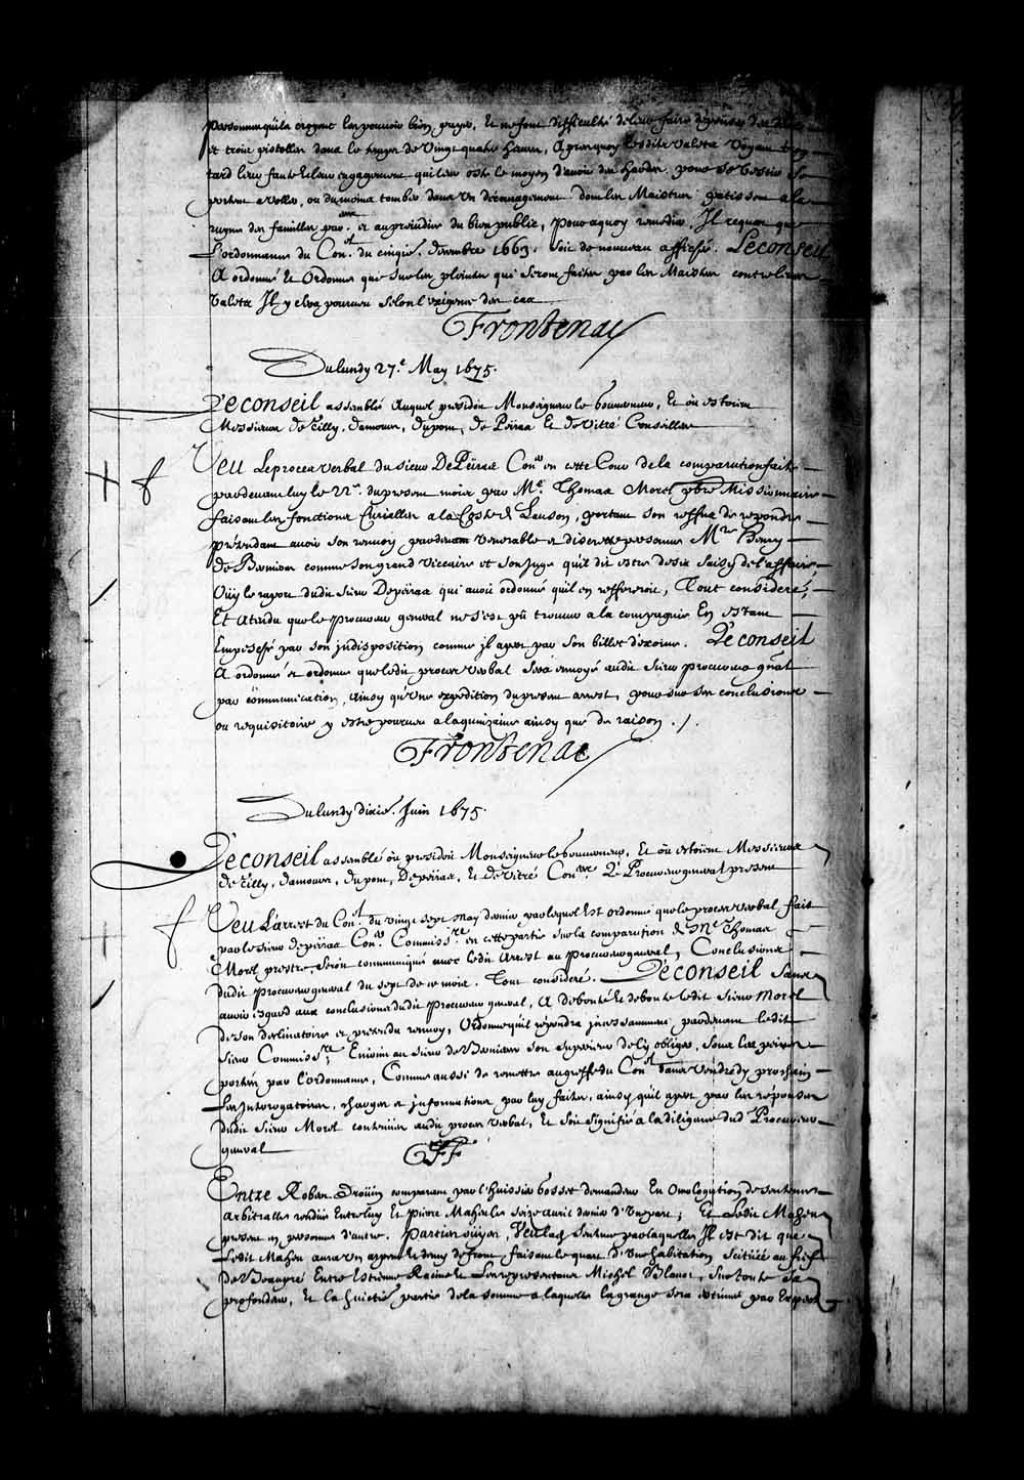 personnes qu'ils croyent les pouvoir bien payer, Et ne font difficulté de leur faire dépenser deux
et trois pistolles dans le temps de vingt quatre heures, Apres quoy lesdits valets voyant trop
tard leur faute et leur engagement qui leur oste le moyen d'avoir des hardes, pour se vestir se
portent a voller, ou du moins tombent dans un découragement dont les Maistres patissent a la
ruyne des familles par. et au prejudice du bien public, Pourquoy remedier, Il requiert que
L'ordonnance du Con.el du cinqie. decembre 1663. soit de nouveau affichée. Le conseil
A ordonné et Ordonne que sur les plaintes qui seront faites par les Maistres contre leurs
valets Il y sera pourveu selon l'exigence des cas
Frontenac
Du lundy 27.e May 1675.
Le conseil assemblé Auquel presidoit Monseigneur le Gouverneur, Et où estoient
Messieurs de Tilly, Damours, Dupont, de Peiras Et de Vitré Conseillers
Veu Le proces verbal du sieur De Peiras Con.er en cette Cour de la comparution faite
pardevant luy le 22.e du present mois par M.e Thomas Morel pbre Missionnaire
faisant les fonctions Curialles a la Coste de Lauson, portant son reffus de repondre
prétendant avoir son renvoy pardevant venerable et discrette personne M.re Henry
de Bernieres comme son grand Viccaire et son Juge qu'il dit estre desja saisy de l'affaire,
Oüy le raport dudit sieur Depeiras qui avoit ordonné qu'il en refferoit, Tout consideré,
Et attendu que le procureur general ne s'est pû trouver a la compagnie En estant
Empesché par son indisposition comme il apert par son billet d'exoine. Le conseil
A ordonné et ordonne que ledit proces verbal sera envoyé audit sieur procureur gñal
par communication, Ainsy qu'une expédition du present arrest, pour sur ses conclusions
ou requisitoire y estre pourveu a la quinzaine ainsy que de raison ./.
Frontenac
Du lundy dixie. Juin 1675.
Le conseil assemblé où presidoit Monseigneur le Gouverneur, Et où estoient Messieurs
de Tilly, Damours, Dupont, Depeiras, Et de Vitré Con.ers Le Procureur general present
Veu L'arrest du Con.el du vingt sept May dernier par lequel Est ordonné que le proces verbal fait
par le sieur depeiras Con.er Commiss.re en cette partie sur la comparution de M.e Thomas
Morel prestre, seroit communiqué avec ledit Arrest au procureur general, Conclusions
dudit procureur general du sept de ce mois. Tout consideré. Le conseil Sans
avoir esgard aux conclusions dudit procureur general, A debouté et deboute ledit sieur Morel
de son declinatoire et pretendu renvoy, Ordonne qu'il répondra incessamment pardevant ledit
sieur Commiss.re Enjoint au sieur de Bernieres son superieur de l'y obliger, sous les peines
portées par l'ordonnance, Comme aussi de remettre au greffe du Con.el dans Vendredy prochain
Les Interrogatoires, charges et informations par luy faites, ainsy qu'il apert par les réponses
dudit sieur Morel contenues audit proces verbal, Et soit signifié a la diligence dud Procureur
general
FF
Entre Robert Droüin comparant par l'huissier Gosset demandeur En Omologation de sentence
arbitralle rendüe Entre luy Et pierre Maheu les seize avril dernier d'Une part; Et Ledit Maheu
present en personne d'autre. Parties oüyes, Veu lad sentence par laquelle Il est dit que
Ledit Maheu aura un arpent et demy de front, faisant le quart d'Une habitation scituée au fief
de Beaupré Entre Estienne Racine et Les representans Michel Blanot, sur toute sa
profondeur, Et la huictie. partie de la somme a laquelle la grange sera estimée par Expers